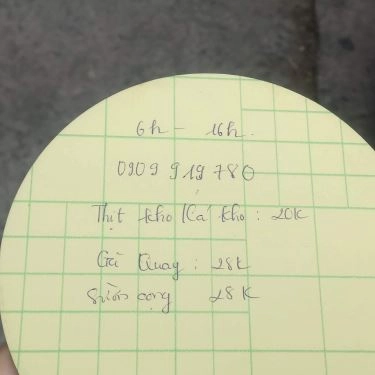 6h - 16h.
0909 919 780
Thịt kho / Cá kho : 20K
Gà Quay : 28K
Sườn cọng 28K